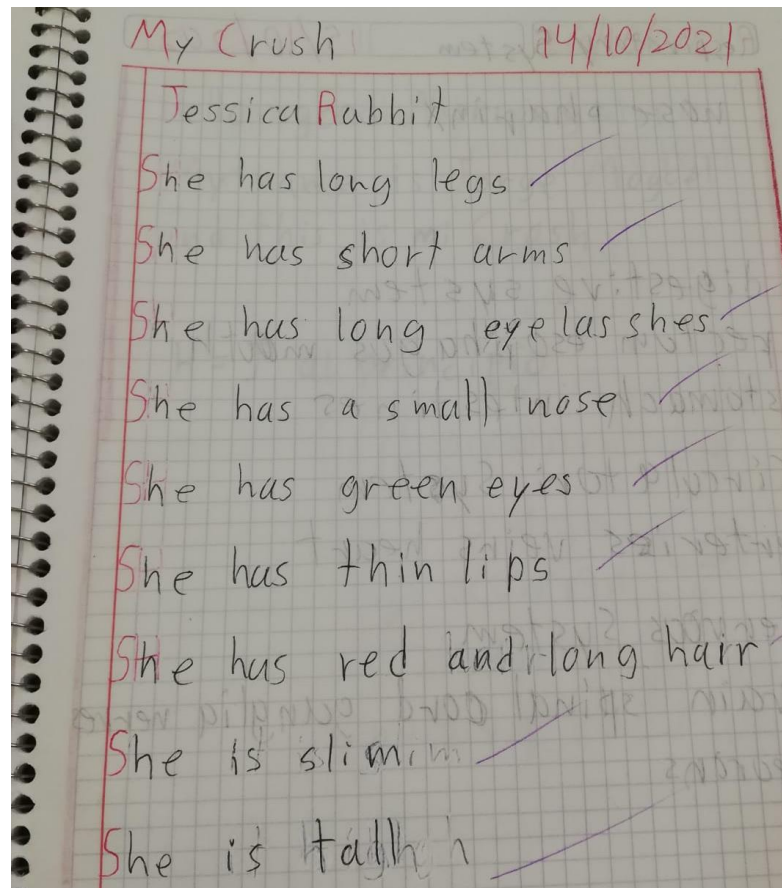 My Crush 14/10/2021
Jessica Rabbit
She has long legs
She has short arms
She has long eyelasshes
She has a small nose
She has green eyes
She has thin lips
She has red and long hair
She is slim
She is tall